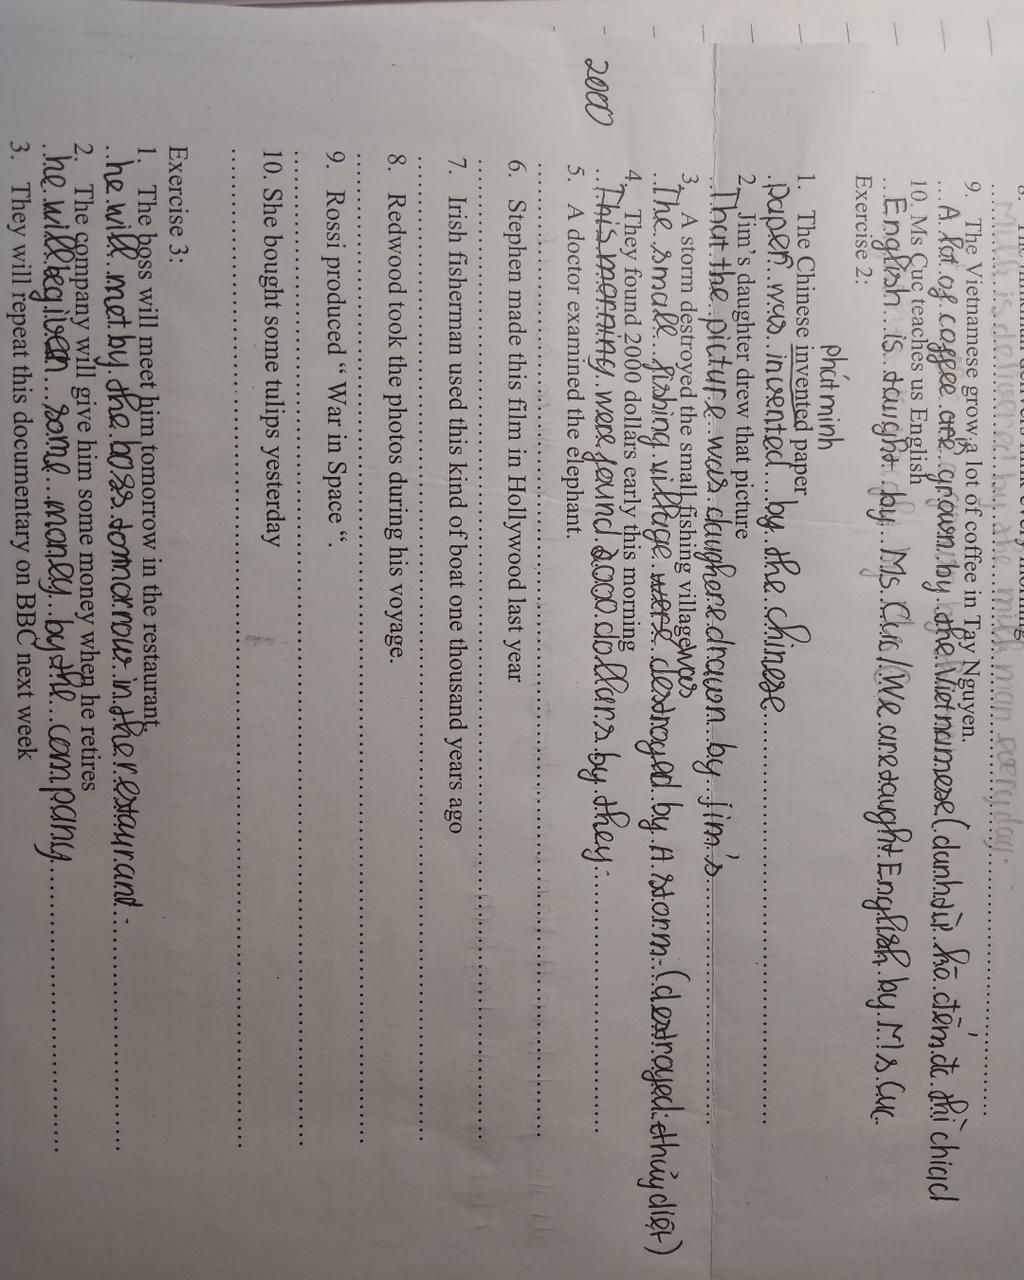 9. The Vietnamese grow a lot of coffee in Tay Nguyen.
A lot of coffee is grown by the Vietnamese (danh từ ko đếm đc thì chia
10. Ms Cuc teaches us English
English is taught by Ms Cuc / We are taught English by Ms Cuc.
Exercise 2:
phát minh
1. The Chinese invented paper
paper was invented by the chinese
2. Jim's daughter drew that picture
That the picture was drawn by jim's
3. A storm destroyed the small fishing village was
The small fishing village were destroyed by A storm. (destroyed thủy diệt)
4. They found 2000 dollars early this morning
This morning were found 2000 dollars by they.
2000
5. A doctor examined the elephant.
6. Stephen made this film in Hollywood last year
7. Irish fisherman used this kind of boat one thousand years ago
8. Redwood took the photos during his voyage.
9. Rossi produced “ War in Space “.
10. She bought some tulips yesterday
Exercise 3:
1. The boss will meet him tomorrow in the restaurant
he will met by the boss tomorrow in the restaurand.
2. The company will give him some money when he retires
he will be given some money by the company
3. They will repeat this documentary on BBC next week